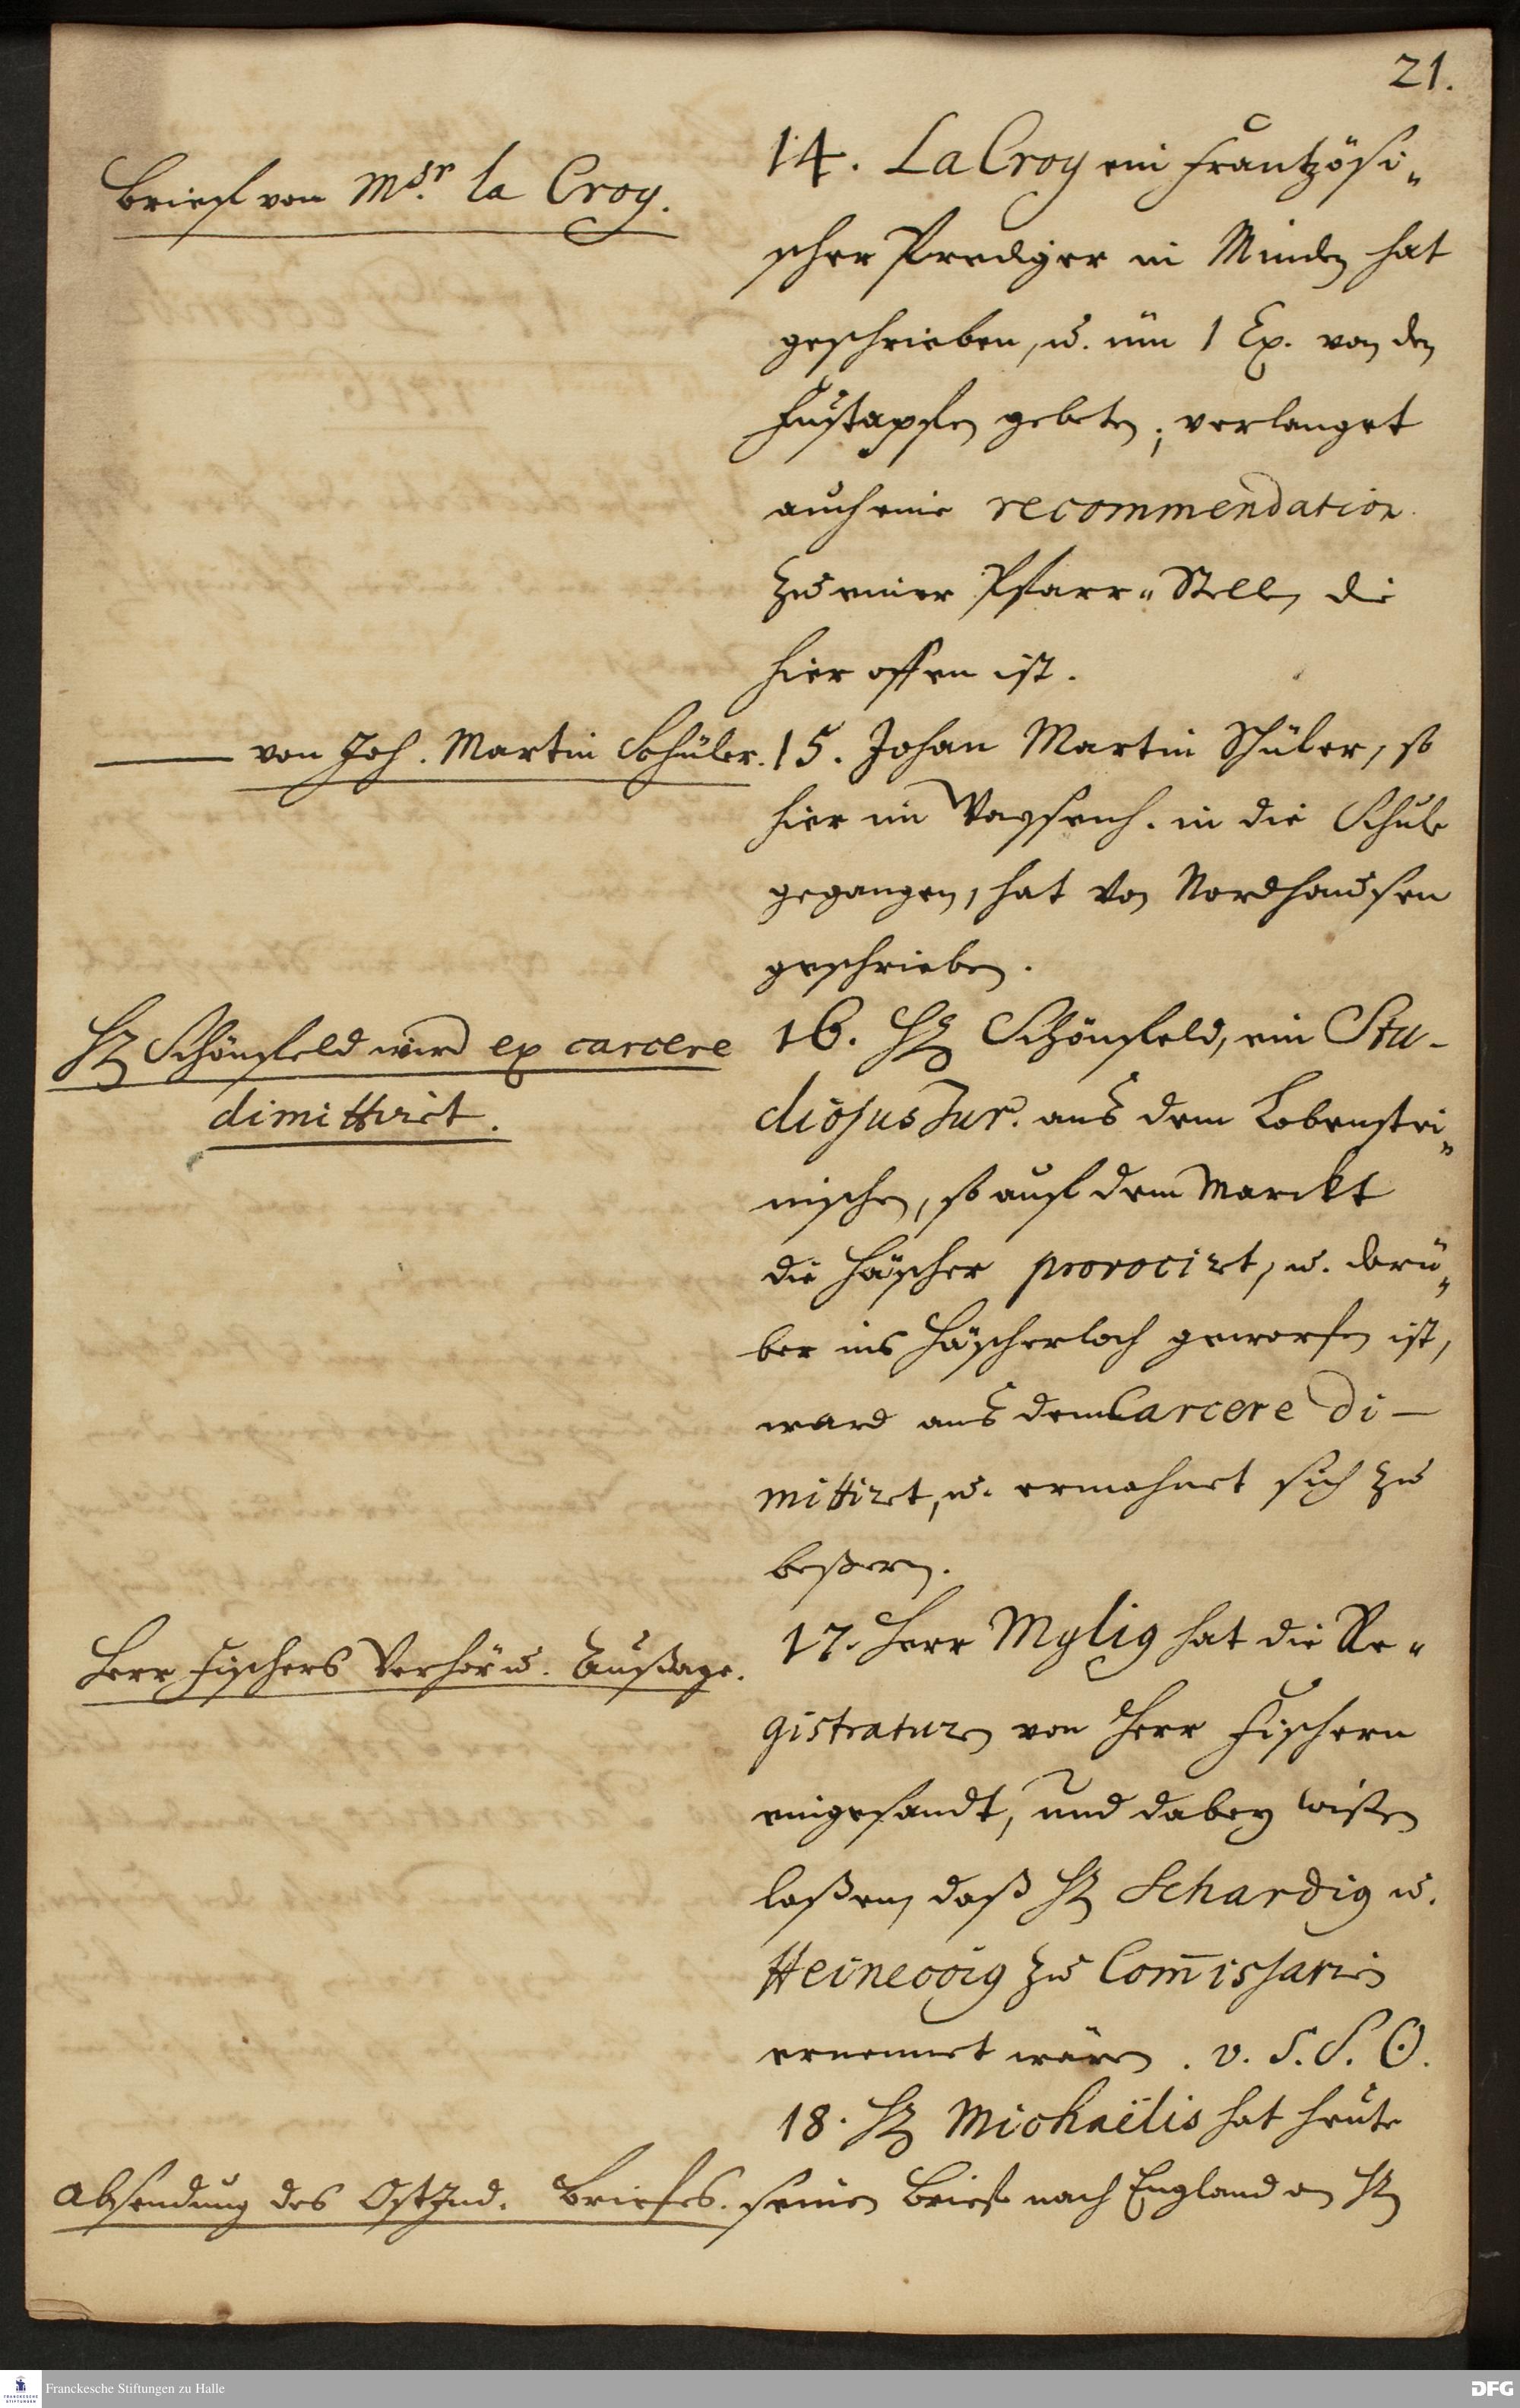 21.
Brieff von Msr. la Croy.
14. La Croy ein Frantzösi-
scher Prediger in Minden hat
geschrieben, u. um 1 Ex. von den
Fustapfen gebeten; verlanget
auch eine recommendation
zu einer Pfarr-Stelle, die
hier offen ist.
von Joh. Martin Schüler.
15. Johan Martin Schüler, so
hier im Waysenh. in die Schule
gegangen, hat von Nordhausen
geschrieben.
H. Schönfeld wird ex carcere
dimittirt.
16. H. Schönfeld, ein Stu-
diosus Jur. aus dem Lobenstei-
nischen, so auff dem Marckt
die Häscher provocirt, u. darü-
ber ins Häscherloch geworfen ist,
ward aus dem Carcere di-
mittirt, u. ermahnet sich zu
beßern.
Herr Fischers Verhör u. Außage.
17. Herr Mylig hat die Re-
gistraturen von Herr Fischern
eingesandt, und dabey wißen
laßen, daß H. Schardig u.
Heineccig zu Com̄issarien
ernennet wären. v. S. S. O.
18. H. Michaëlis hat heute
Absendung des OstInd. Briefes.
seinen Brieff nach England an H.
Franckesche Stiftungen zu Halle
DFG